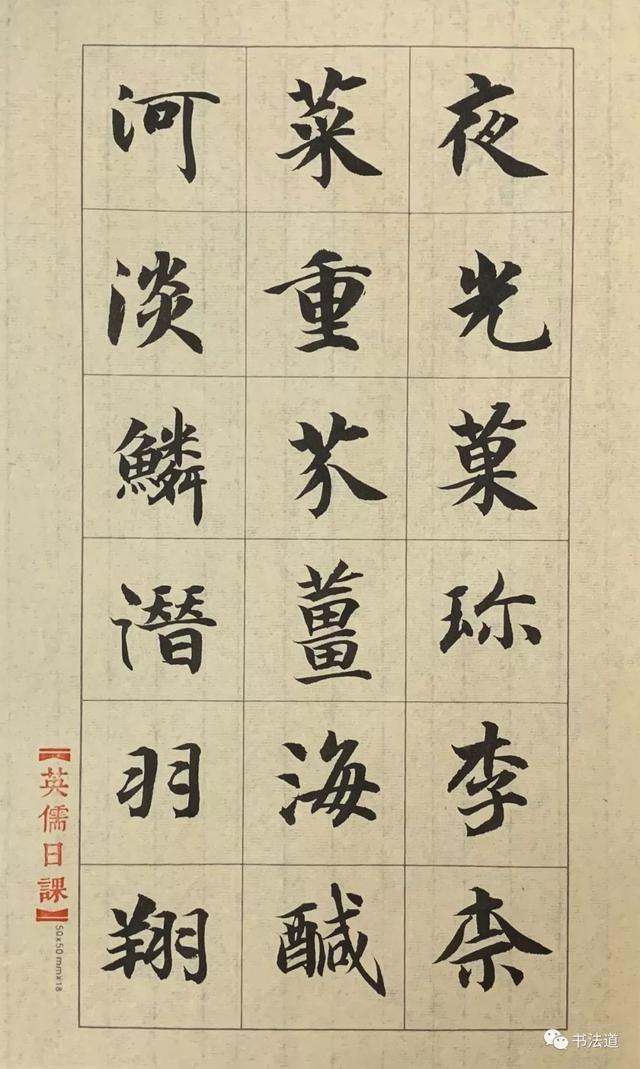 夜光菓珎李柰
菜重芥薑海醎
河淡鱗潛羽翔
【英儒日課】
50x50mmx18
书法道